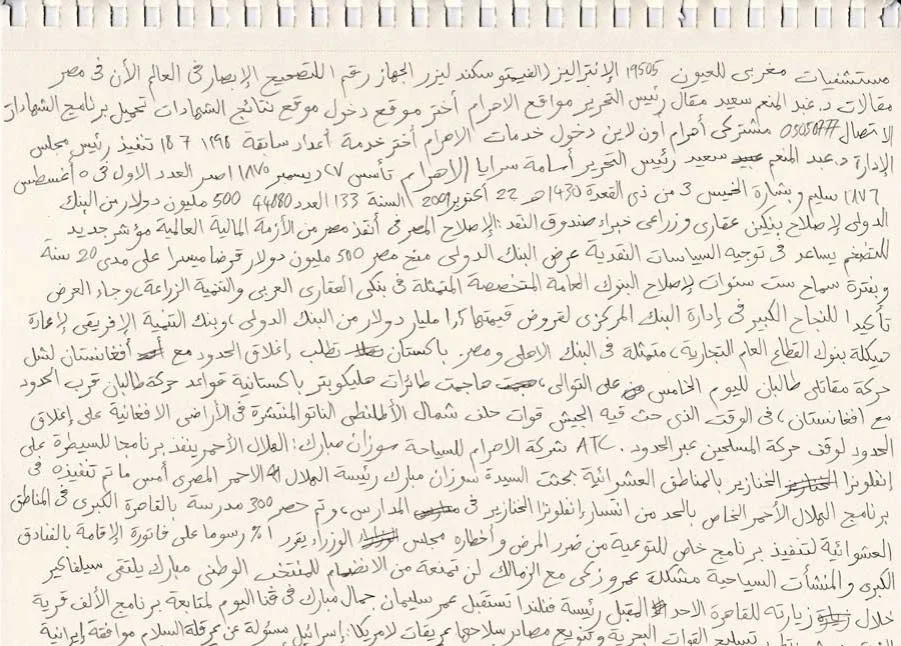 مستشفيات مغربى للعيون 19505 الإنتراليز (الفيمتو سكند ليزر الجهاز رقم 1 للتصحيح الإبصار فى العالم الأن فى مصر
مقالات د. عبد المنعم سعيد مقال رئيس التحرير مواقع الاهرام أختر موقع دخول موقع نتائج الشهادات تحميل برنامج الشهادات
الإتصال 05050777 مشتركى أهرام أون لاين دخول خدمات الاهرام أختر خدمة أعداد سابقة ١٨٩٨ 7 18 تنفيذ رئيس مجلس
الإدارة د. عبد المنعم سعيد رئيس التحرير أسامة سرايا (الأهرام تأسس ٢٧ ديسمبر ١٨٧٥ اصدر العدد الاول فى ٥ أغسطس
١٨٧٦ سليم و بشارة الخميس 3 من ذى القعدة 1430 هـ 22 أكتوبر 2009 السنة 133 العدد 44880 500 مليون دولار من البنك
الدولى لإصلاح بنكين عقارى وزراعى خبراء صندوق النقد: الإصلاح المصرفى أنقذ مصر من الأزمة المالية العالمية مؤشر جديد
للتضخم يساعد فى توجيه السياسات النقدية عرض البنك الدولى منح مصر 500 مليون دولار قرضا ميسرا على مدى 20 سنة
وبفترة سماح ست سنوات لإصلاح البنوك العامة المتخصصة المتمثلة فى بنكى العقارى العربى والتنمية الزراعة، وجاء العرض
تأكيدا للنجاح الكبير فى إدارة البنك المركزى لقروض قيمتها ١٫٥ مليار دولار من البنك الدولى، وبنك التنمية الإفريقى لإعادة
هيكلة بنوك القطاع العام التجارية، متمثلة فى البنك الاهلى ومصر. باكستان تطلب إغلاق الحدود مع أفغانستان لشل
حركة مقاتلى طالبان لليوم الخامس على التوالى، هاجمت طائرات هليكوبتر باكستانية قواعد حركة طالبان قرب الحدود
مع افغانستان، فى الوقت الذى حث فيه الجيش قوات حلف شمال الأطلنطى الناتو المنتشرة فى الأراضى الافغانية على إغلاق
الحدود لوقف حركة المسلحين عبر الحدود. ATC شركة الاهرام للسياحة سوزان مبارك: الهلال الأحمر ينفذ برنامجا للسيطرة على
إنفلونزا الخنازير بالمناطق العشوائية بحثت السيدة سوزان مبارك رئيسة الهلال الاحمر المصرى أمس ما تم تنفيذه فى
برنامج الهلال الأحمر الخاص بالحد من انتشار إنفلونزا الخنازير فى المدارس، وتم حصر 300 مدرسة بالقاهرة الكبرى فى المناطق
العشوائية لتنفيذ برنامج خاص للتوعية من ضرر المرض وأخطاره مجلس الوزراء يقرر ١% رسوما على فاتورة الإقامة بالفنادق
الكبرى والمنشأت السياحية مشكلة عمرو زكى مع الزمالك لن تمنعة من الانضمام للمنتخب الوطنى مبارك يلتقى سيلفاكير
خلال زيارته للقاهرة الاحد المقبل رئيسة فنلندا تستقبل عمر سليمان جمال مبارك فى قنا اليوم لمتابعة برنامج الألف قرية
تسليح القوات البحرية وتنويع مصادر سلاحها بعريقات لامريكا: إسرائيل مسئولة عن عرقلة السلام موافقة إيرانية